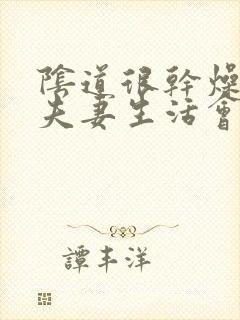 陰道很幹燥
夫妻生活會
譚丰洋